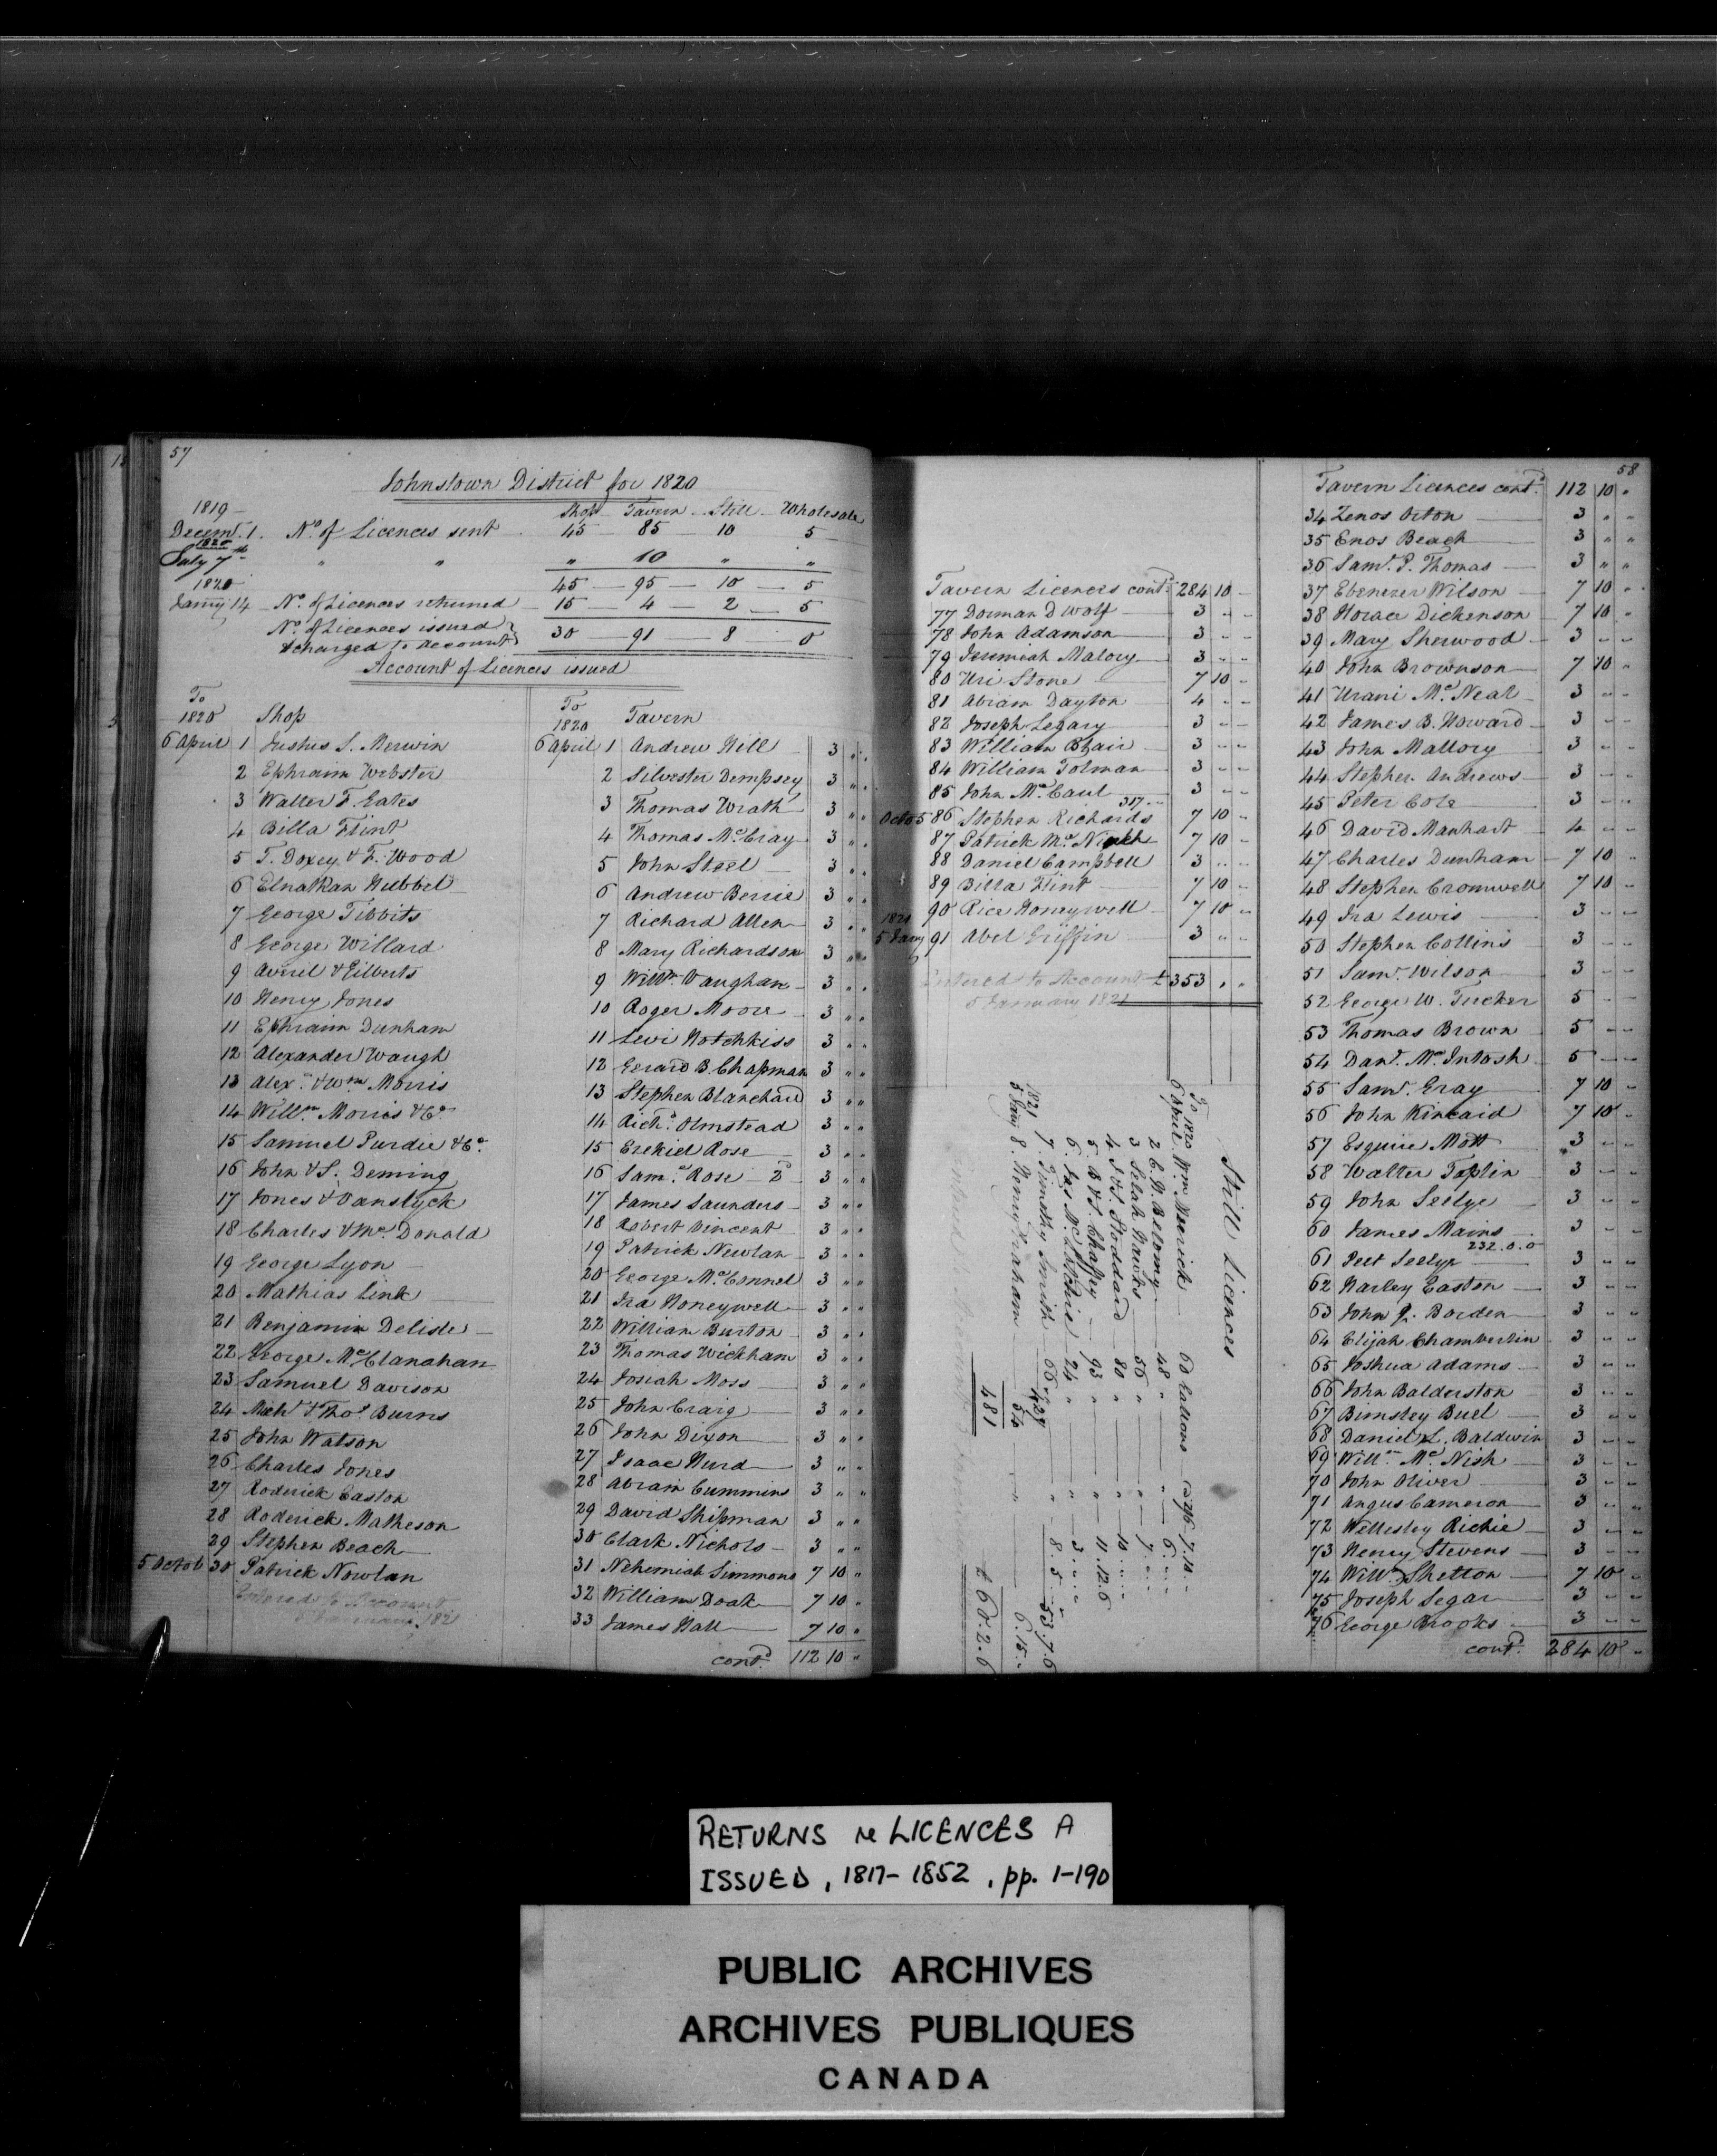 57
Johnstown District for 1820
1819 Shop Tavern Still Wholesale
Decemr. 1. No. of Licences sent 45 85 10 5
1820
July 7th " " " 10 " "
1820 45 95 10 5
Janry 14 No. of Licences returned 15 4 2 5
No. of Licences issued
& charged to Account 30 91 8 0
Account of Licences issued
To
1820 Shop
6 April 1 Justus S. Merwin
2 Ephraim Webster
3 Walter F. Gates
4 Billa Flint
5 T. Doxey & F. Wood
6 Elnathan Hubbel
7 George Tibbits
8 George Willard
9 Averil & Gilberts
10 Henry Jones
11 Ephraim Dunham
12 Alexander Waugh
13 Alexr. & Wm Morris
14 Willm. Morris & Co.
15 Samuel Purdie & Co.
16 John & S. Deming
17 Jones & Vanslyck
18 Charles & Mc. Donald
19 George Lyon
20 Mathias Link
21 Benjamin Delisle
22 George Mc. Clanahan
23 Samuel Davison
24 Michl & Thos Burns
25 John Watson
26 Charles Jones
27 Roderick Easton
28 Roderick Matheson
29 Stephen Beach
5 Octob 30 Patrick Nowlan
Entered to Account
5 January 1821
To
1820 Tavern
6 April 1 Andrew Hill 3 " "
2 Silvester Dempsey 3 " "
3 Thomas Wrath 3 " "
4 Thomas Mc. Cray 3 " "
5 John Steel 3 " "
6 Andrew Berrie 3 " "
7 Richard Allen 3 " "
8 Mary Richardson 3 " "
9 Willm. Vaughan 3 " "
10 Roger Moore 3 " "
11 Levi Hotchkiss 3 " "
12 Gerard B. Chapman 3 " "
13 Stephen Blanchard 3 " "
14 Richd. Olmstead 3 " "
15 Ezekiel Rose 3 " "
16 Saml. Rose 2d 3 " "
17 James Saunders 3 " "
18 Robert Vincent 3 " "
19 Patrick Nowlan 3 " "
20 George Mc. Connel 3 " "
21 Ira Honeywell 3 " "
22 William Burton 3 " "
23 Thomas Wickham 3 " "
24 Josiah Moss 3 " "
25 John Craig 3 " "
26 John Dixon 3 " "
27 Isaac Hurd 3 " "
28 Abram Cummins 3 " "
29 David Shipman 3 " "
30 Clark Nichols 3 " "
31 Nehemiah Simmons 7 10 "
32 William Doak 7 10 "
33 James Hall 7 10 "
contd. 112 10 "
Tavern Licences contd. 284 10 -
77 Dorman D Wolf 3 " "
78 John Adamson 3 " "
79 Jeremiah Malory 3 " "
80 Uri Stone 7 10 -
81 Abram Dayton 4 " "
82 Joseph Legary 3 " "
83 William Blair 3 " "
84 William Tolman 3 " "
85 John Mc. Caul 3 " "
317 " "
Octo 5 86 Stephen Richards 7 10 "
87 Patrick Mc. 7 10 "
88 Daniel Campbell 3 " "
89 Billa Flint 7 10 "
90 Rice Honeywell 7 10 "
1821
5 Jany 91 Abel Griffin 3 " "
Entered to Account £ 353 " "
5 January 1821
Still Licences
To 1820
6 April 1. Wm Merick 60 Gallons @ 2/6 7.10.-
2 E. H. Belamy 48 " " 6 " "
3 Selah Hawks 56 " " 7 " "
4 I & S. Stoddard 80 " " 10 " "
5. B & S. Chaffey 93 " " 11.12.6
6. Jas Mc. 24 " " 3 " "
7. Timothy Smith 66 " " 8.5.-
427 53.7.6
1821
5 Jany 8. Henry Graham 54 " 6.15.-
481 £ 60.2.6
58
Tavern Licences contd. 112 10 "
34 Zenos Orton 3 " "
35 Enos Beach 3 " "
36 Saml. P. Thomas 3 " "
37 Ebenezer Wilson 7 10 "
38 Horace Dickenson 7 10 "
39 Mary Sherwood 3 " "
40 John Brownson 7 10 "
41 Urani Mc. Neal 3 " "
42 James B. Howard 3 " "
43 John Mallory 3 " "
44 Stephen Andrews 3 " "
45 Peter Cole 3 " "
46 David Manhart 4 " "
47 Charles Dunham 7 10 "
48 Stephen Cromwell 7 10 "
49 Ira Lewis 3 " "
50 Stephen Collins 3 " "
51 Saml. Wilson 3 " "
52 George W. Tucker 5 " "
53 Thomas Brown 5 " "
54 Danl. Mc. Intosh 5 " "
55 Saml. Gray 7 10 "
56 John Kincaid 7 10 "
57 Esquire Mott 3 " "
58 Walter Toplin 3 " "
59 John Seelye 3 " "
60 James Mains 3 " "
232.0.0
61 Peet Seelye 3 " "
62 Harley Easton 3 " "
63 John Borden 3 " "
64 Elijah Chamberlin 3 " "
65 Joshua Adams 3 " "
66 John Balderston 3 " "
67 Bimsley Buel 3 " "
68 Daniel L. Baldwin 3 " "
69 Willm. Mc. Nish 3 " "
70 John Oliver 3 " "
71 Angus Cameron 3 " "
72 Wellesley Richie 3 " "
73 Henry Stevens 3 " "
74 Willm. Shelton 7 10 "
75 Joseph Legar 3 " "
76 George Brooks 3 " "
contd. 284 10 "
RETURNS re LICENCES A
ISSUED, 1817-1852, pp. 1-190
PUBLIC ARCHIVES
ARCHIVES PUBLIQUES
CANADA